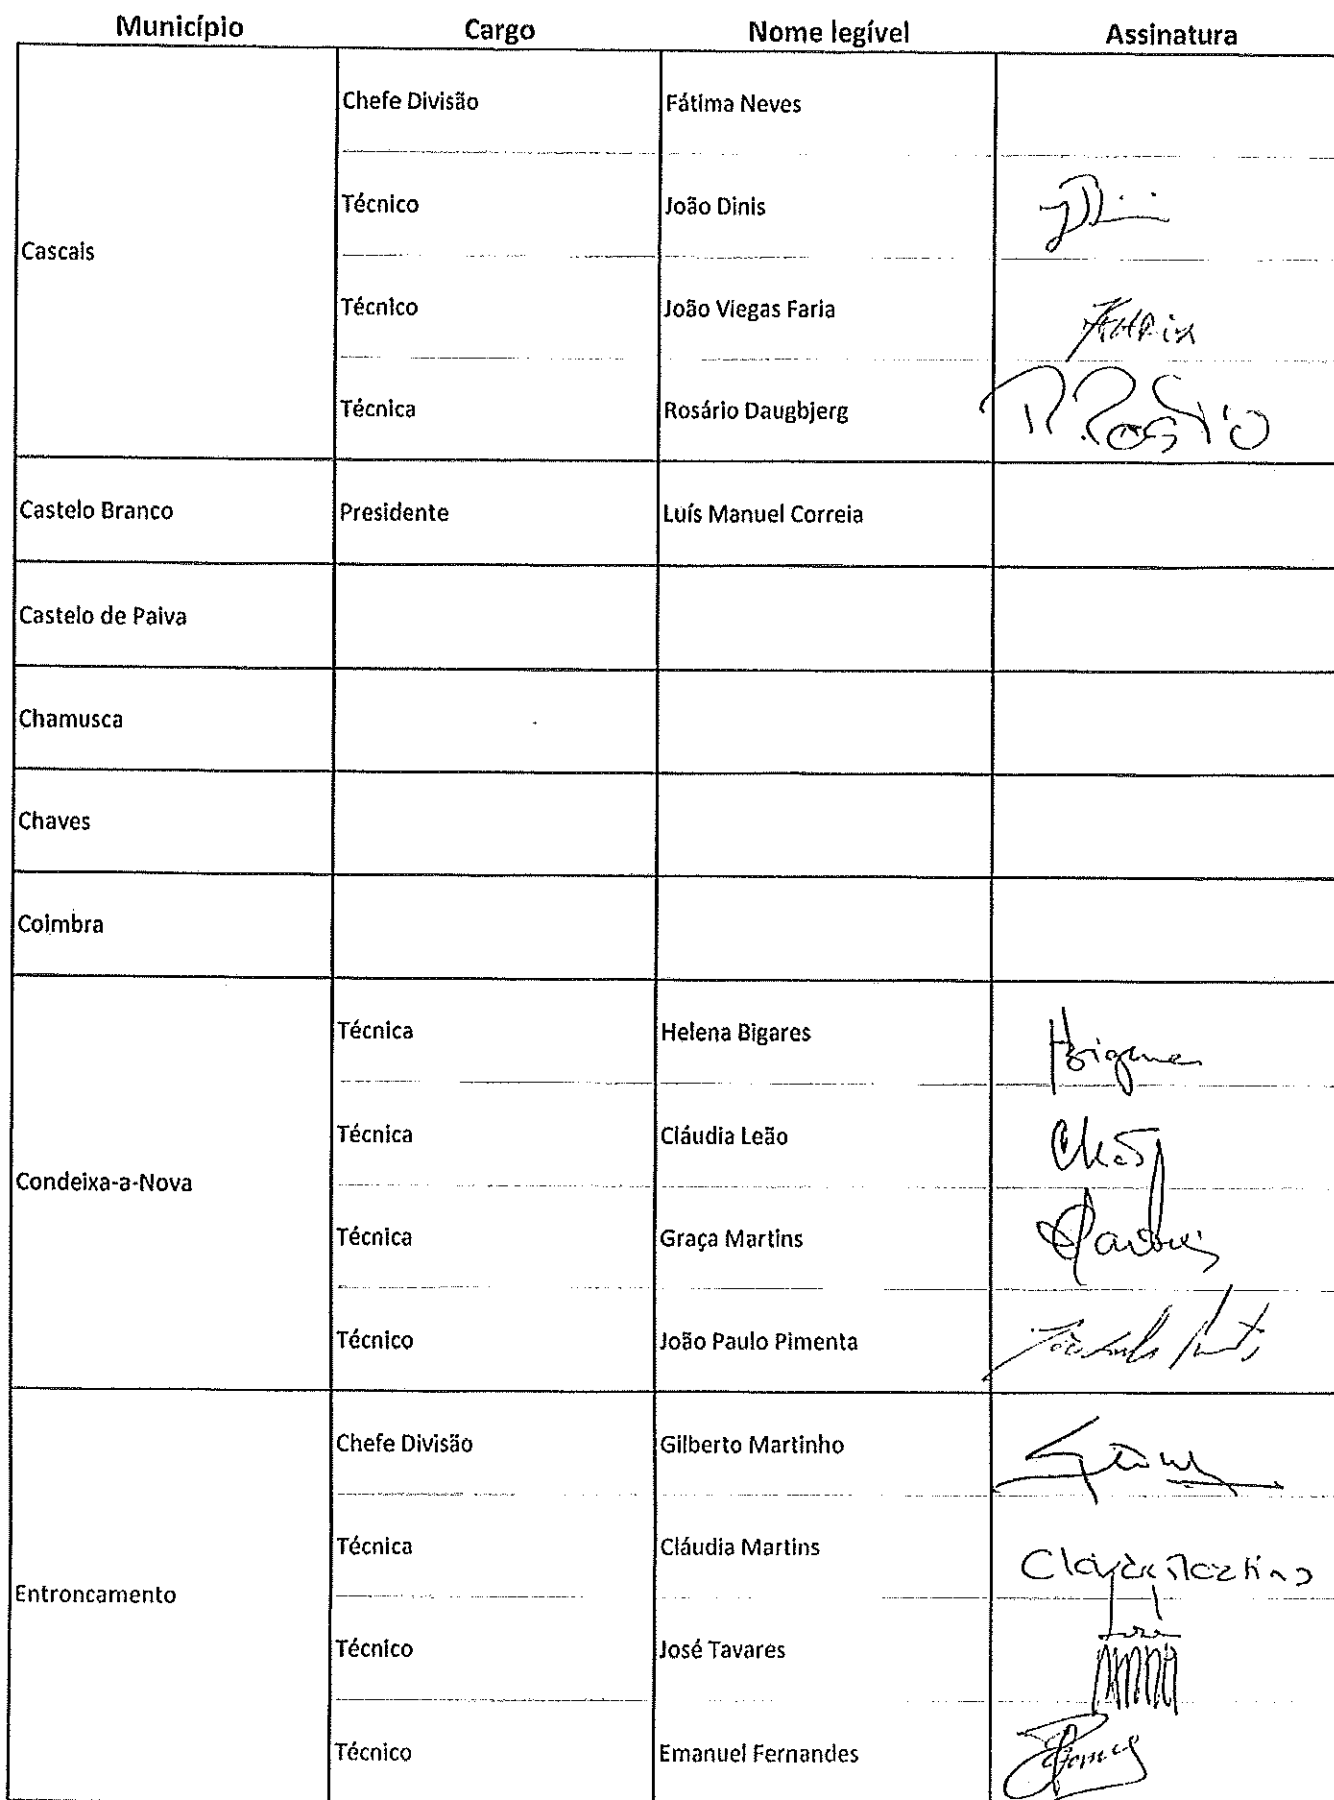 Município Cargo Nome legível Assinatura
Cascais
Chefe Divisão Fátima Neves
Técnico João Dinis
Técnico João Viegas Faria
Técnica Rosário Daugbjerg
Castelo Branco Presidente Luís Manuel Correia
Castelo de Paiva
Chamusca
Chaves
Coimbra
Condeixa-a-Nova
Técnica Helena Bigares
Técnica Cláudia Leão
Técnica Graça Martins
Técnico João Paulo Pimenta
Entroncamento
Chefe Divisão Gilberto Martinho
Técnica Cláudia Martins Cláudia Martins
Técnico José Tavares
Técnico Emanuel Fernandes